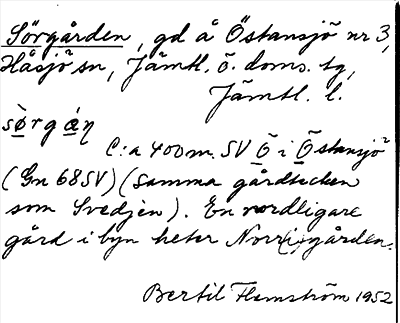 Sörgården, gd å Östansjö nr 3,
Håsjö sn, Jämtl. ö. doms. tg,
Jämtl. l.
sø̀rgǽŋ
C:a 400 m. SV Ö i Östansjö
(Gn 68 SV) (samma gårdtecken
som Svedjen). En nordligare
gård i byn heter Norr(i)gården.
Bertil Flemström 1952